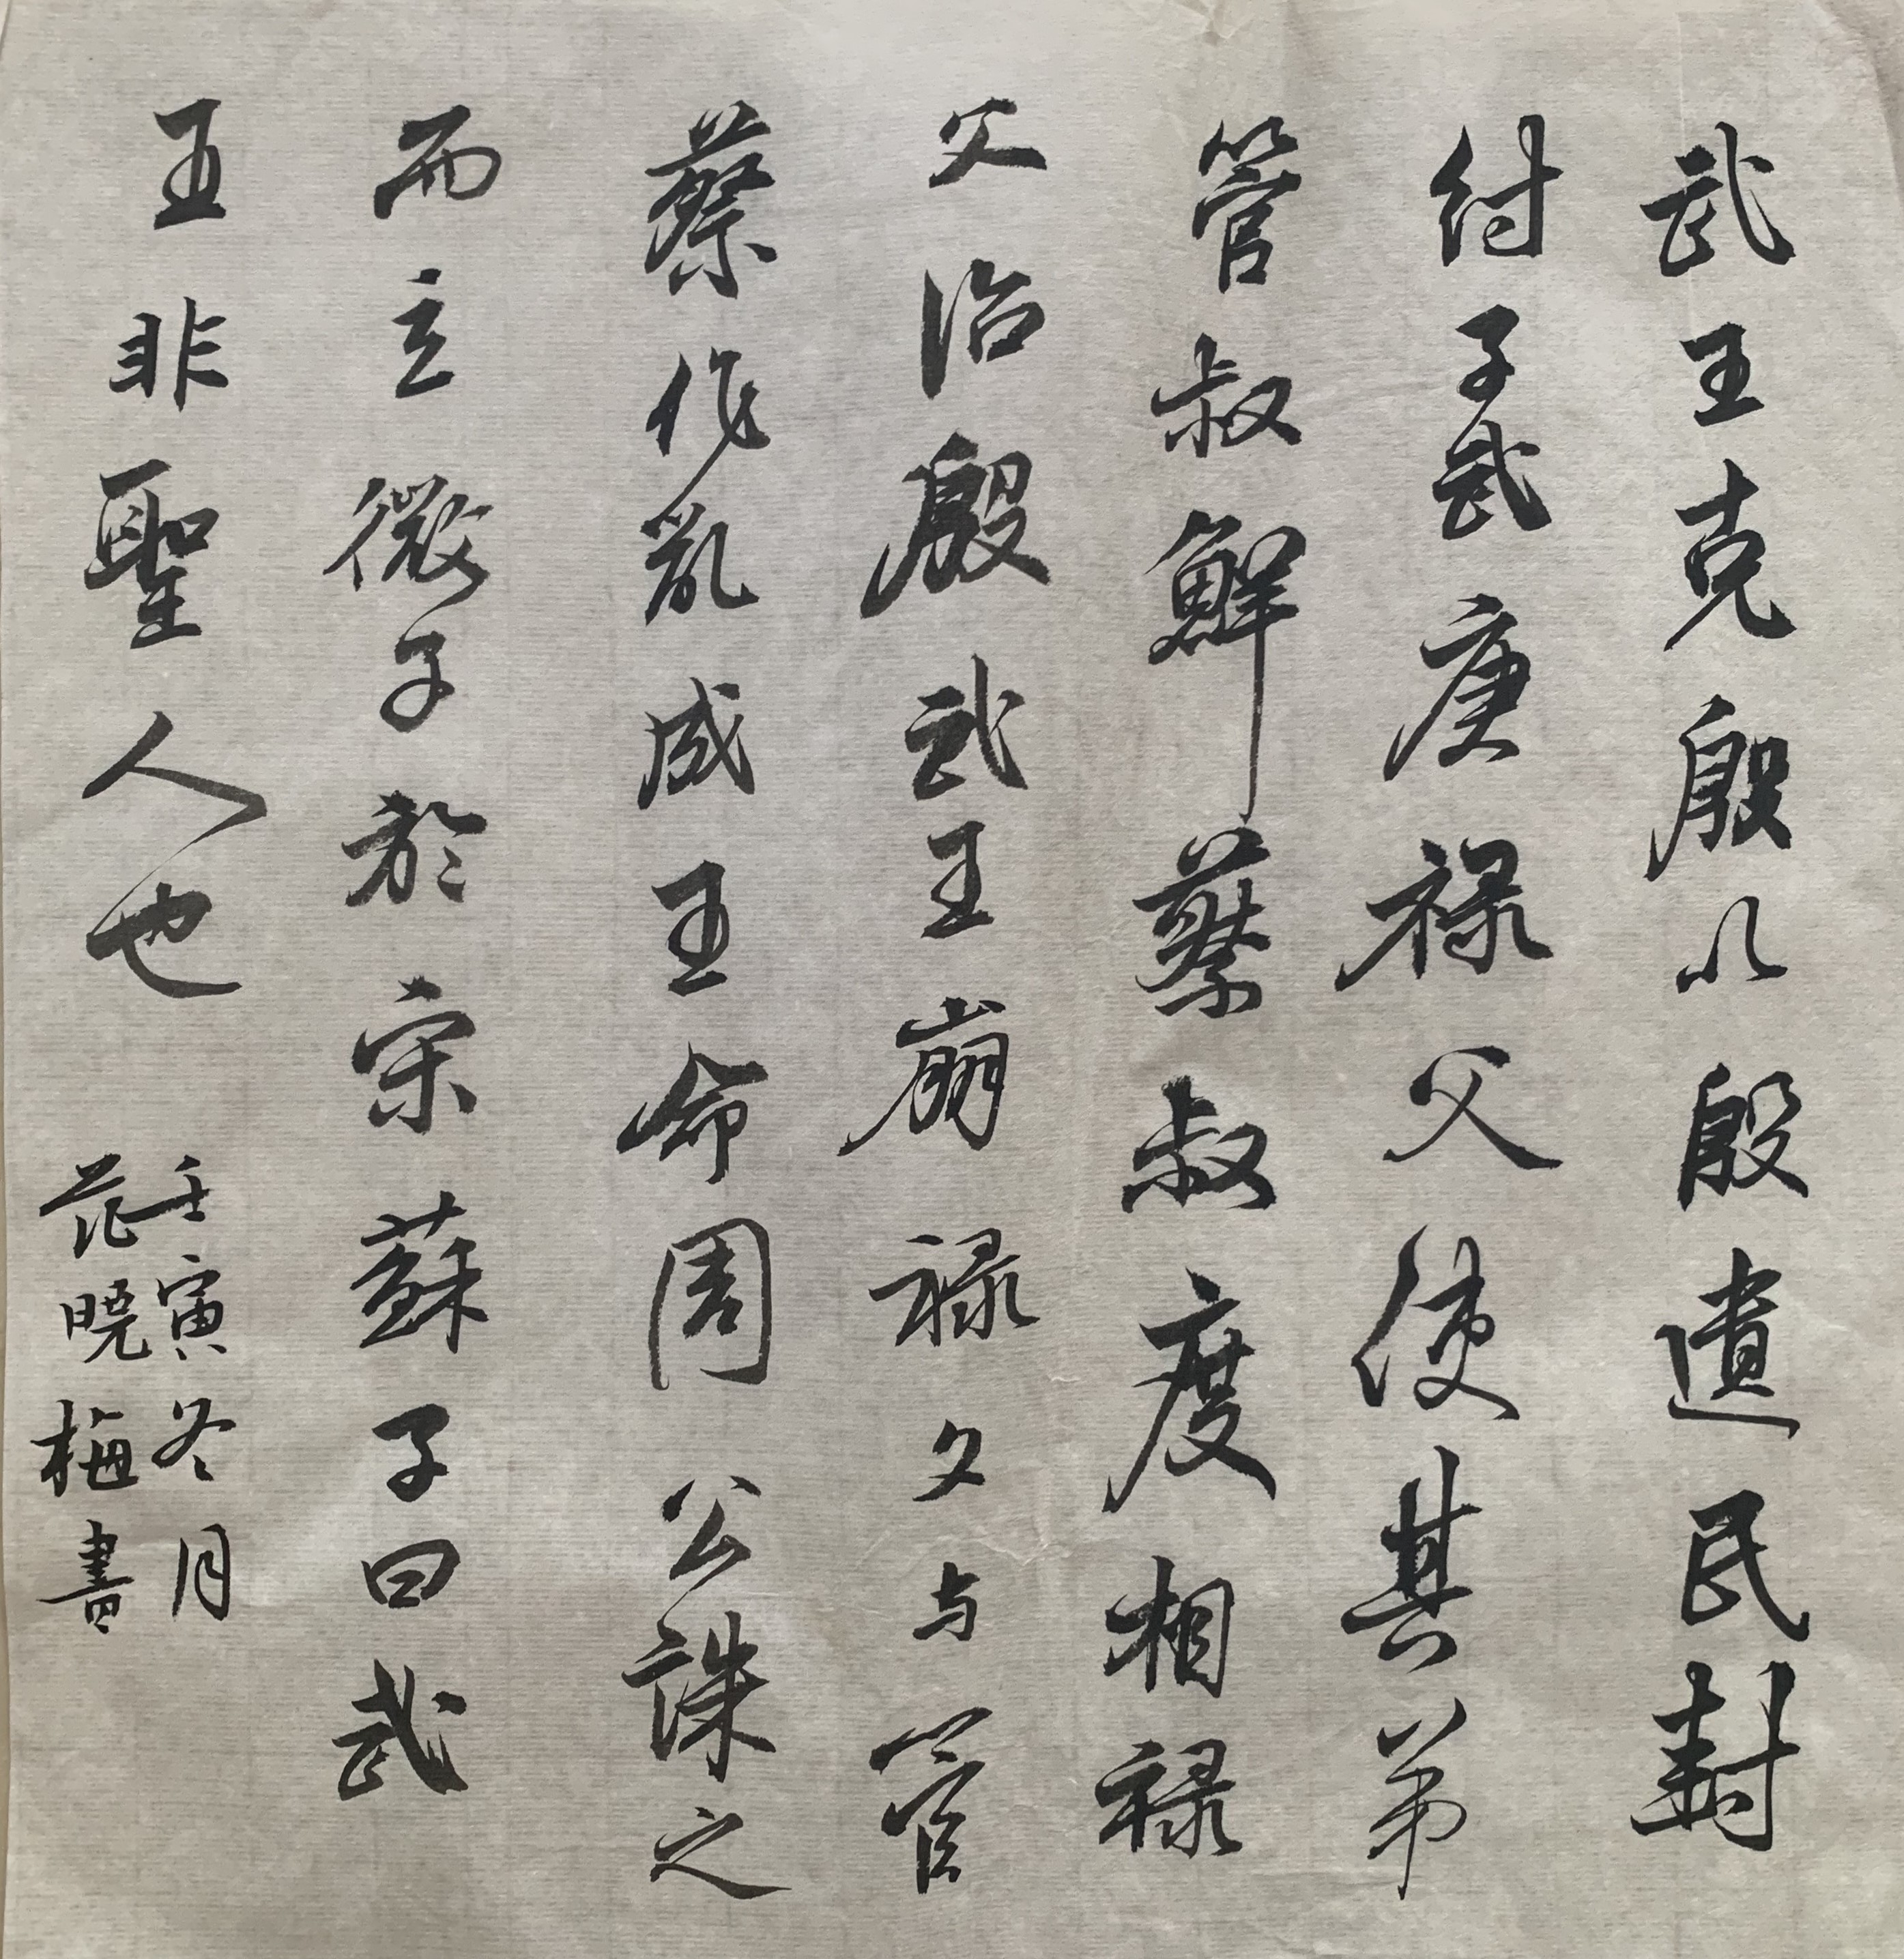 武王克殷以殷遺民封
紂子武庚禄父使其弟
管叔鮮蔡叔度相禄
父治殷武王崩禄父与管
蔡作亂成王命周公誅之
而立微子於宋蘇子曰武
王非聖人也
壬寅冬月
范曉梅書